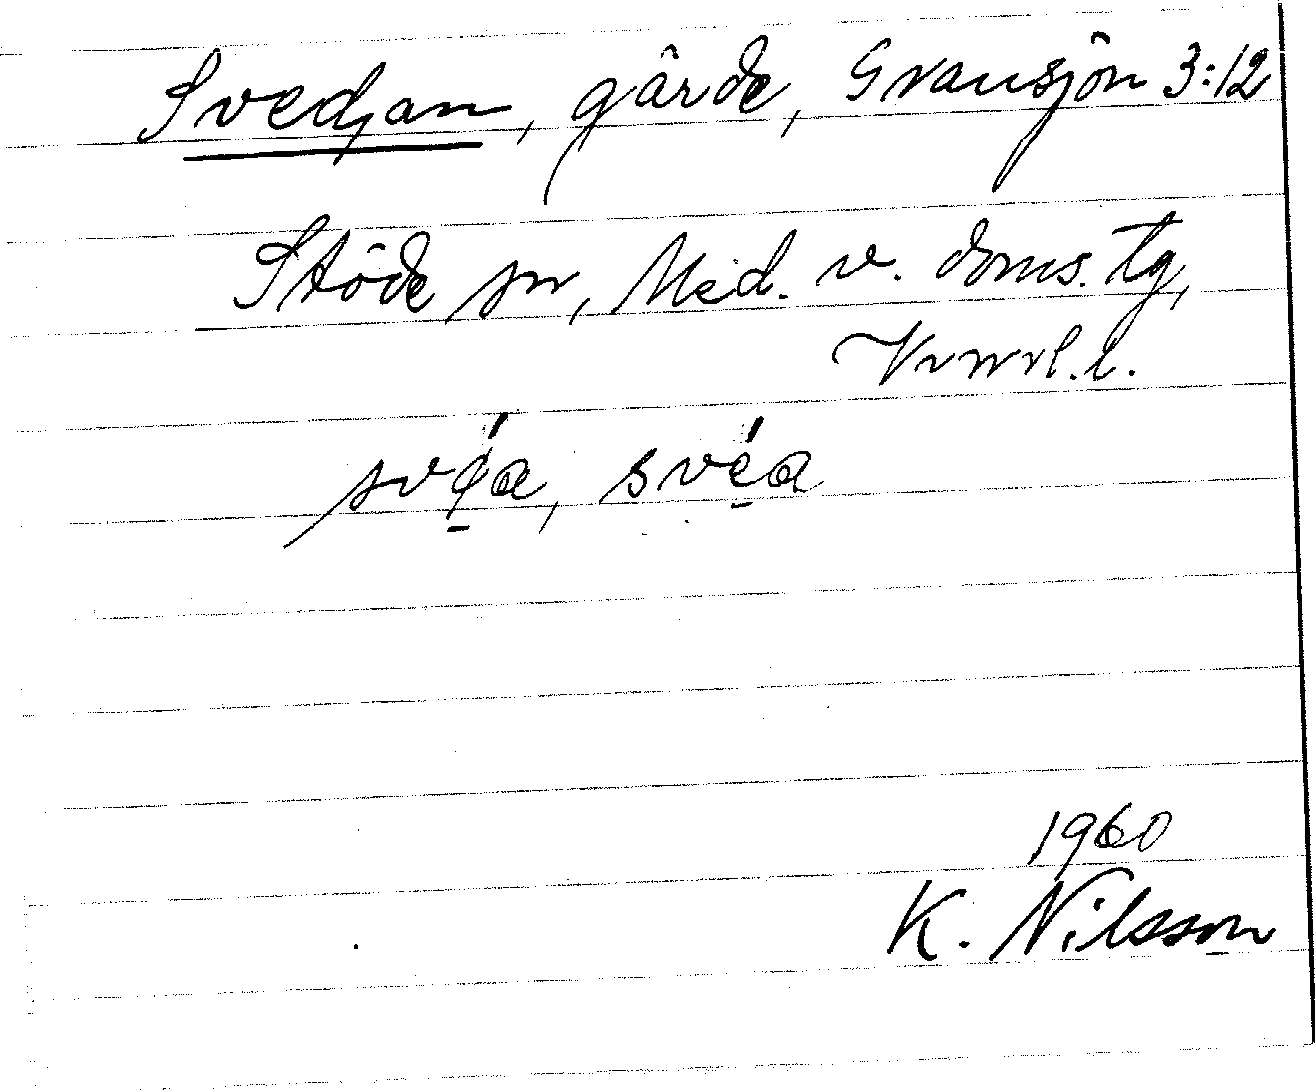 Svedjan, gärde, Gransjön 3:12
Stöde sn, Med. v. doms. tg,
Vrnrl. l.
svéa, svéa
1960
K. Nilsson